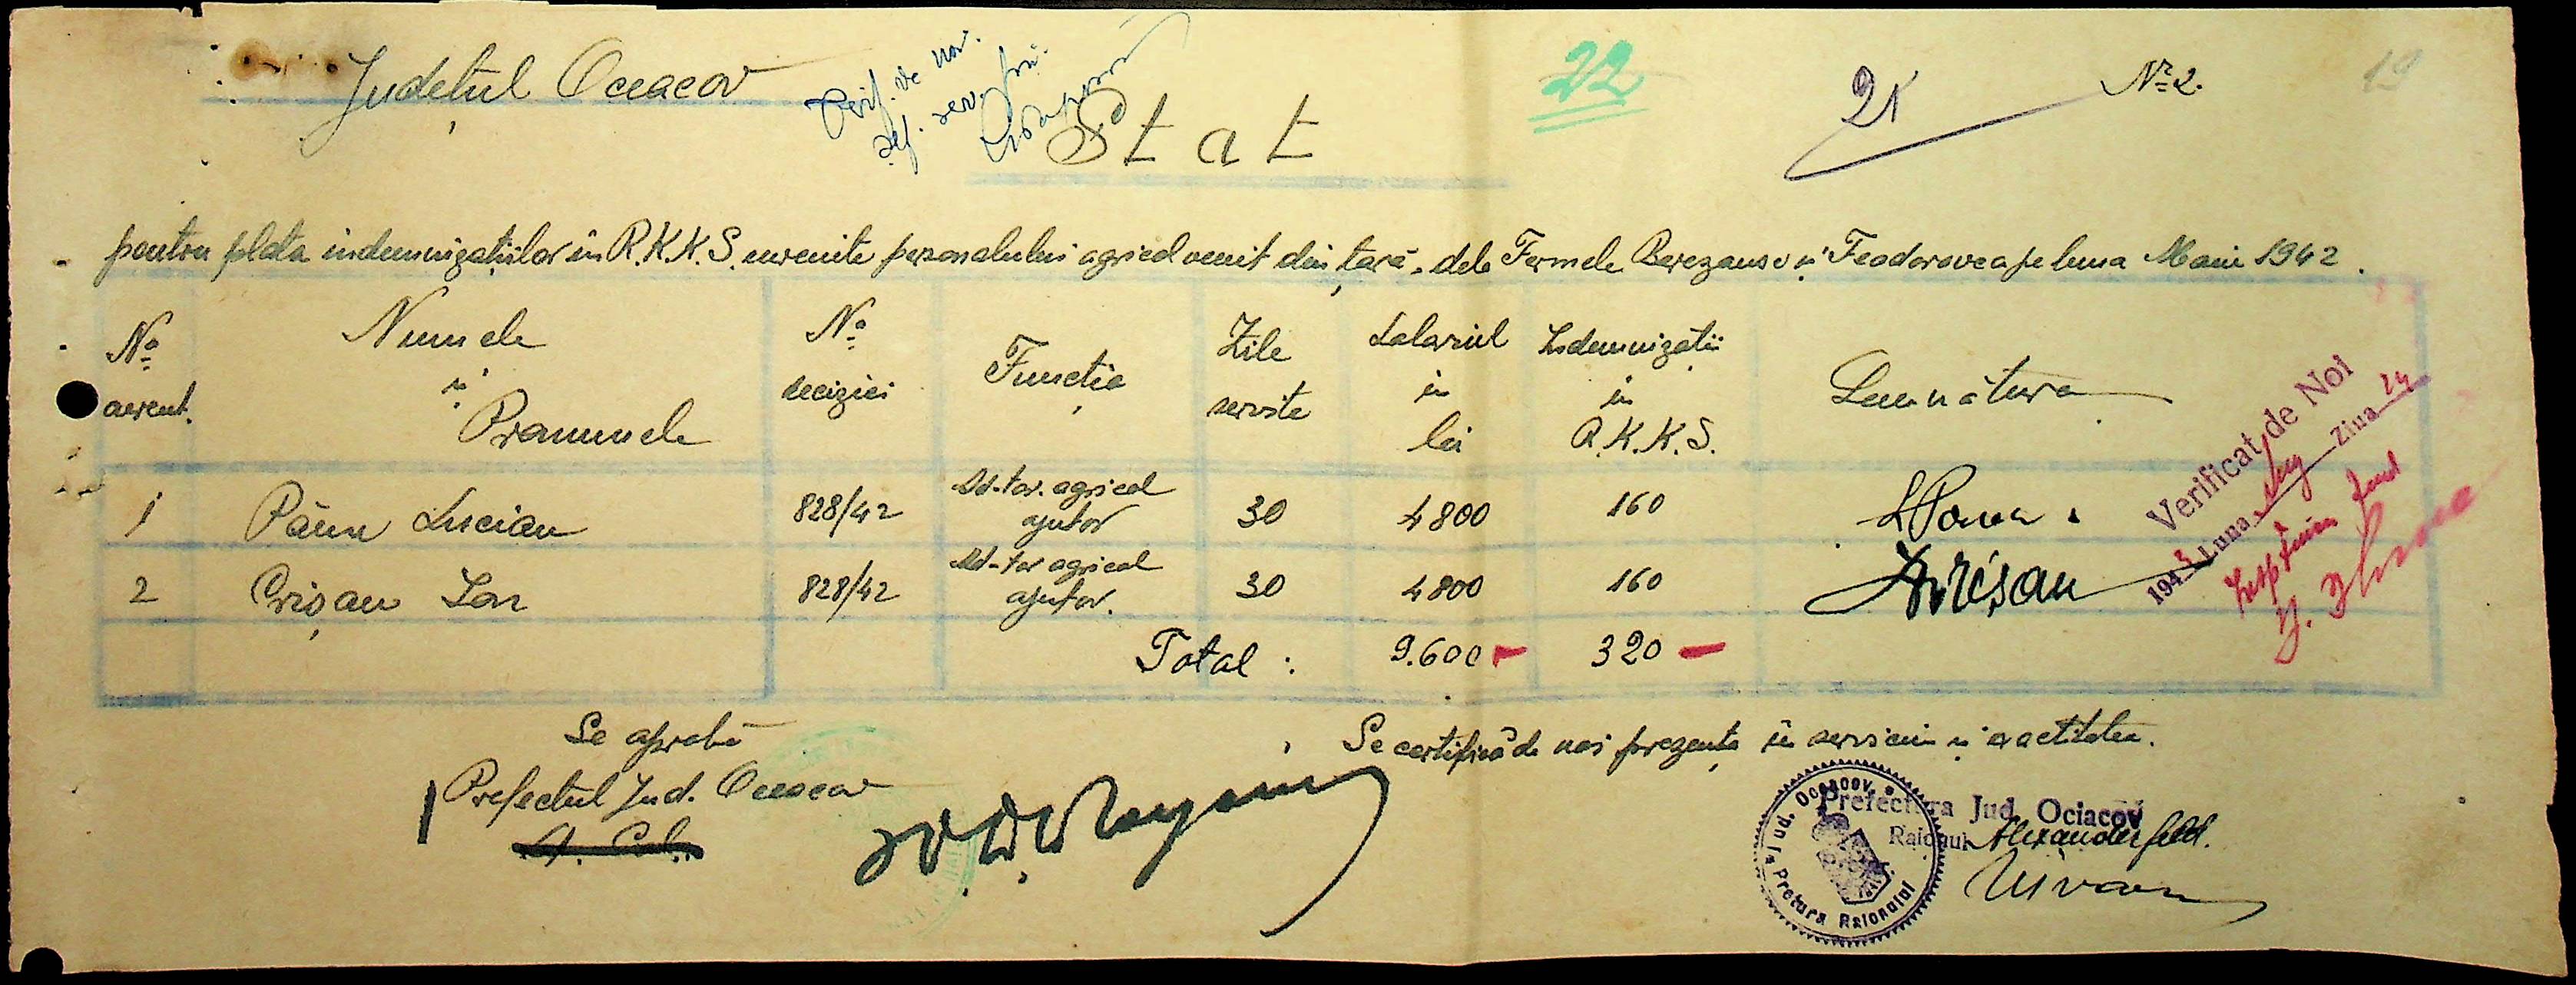 Județul Oceacov
Verif. de noi
22
21
Nr 2.
19
Stat
pentru plata indemnizațiilor în R.K.K.S. cuvenite personalului agricol venit din țară, dela Fermele Berezansc și Feodorovca pe luna Maiu 1942.
No curent.
Numele și Pronumele
No deciziei
Funcția
Zile servite
Salariul în lei
Indemnizații în R.K.K.S.
Semnătura
1 Păun Lucian 828/42 Ad-tor. agricol ajutor 30 4800 160 LPaun
2 Crișan Ion 828/42 Ad-tor agricol ajutor. 30 4800 160 Crișan
Total: 9.600 — 320 —
Verificat de Noi
1943 Luna Aug Ziua 24
Se aprobă
Prefectul Jud. Oceacov
Se certifică de noi prezența în serviciu și exactitatea.
Prefectura Jud. Ociacov
Raionul Alexanderfeld.
Jud. Oceacov
Pretura Raionului